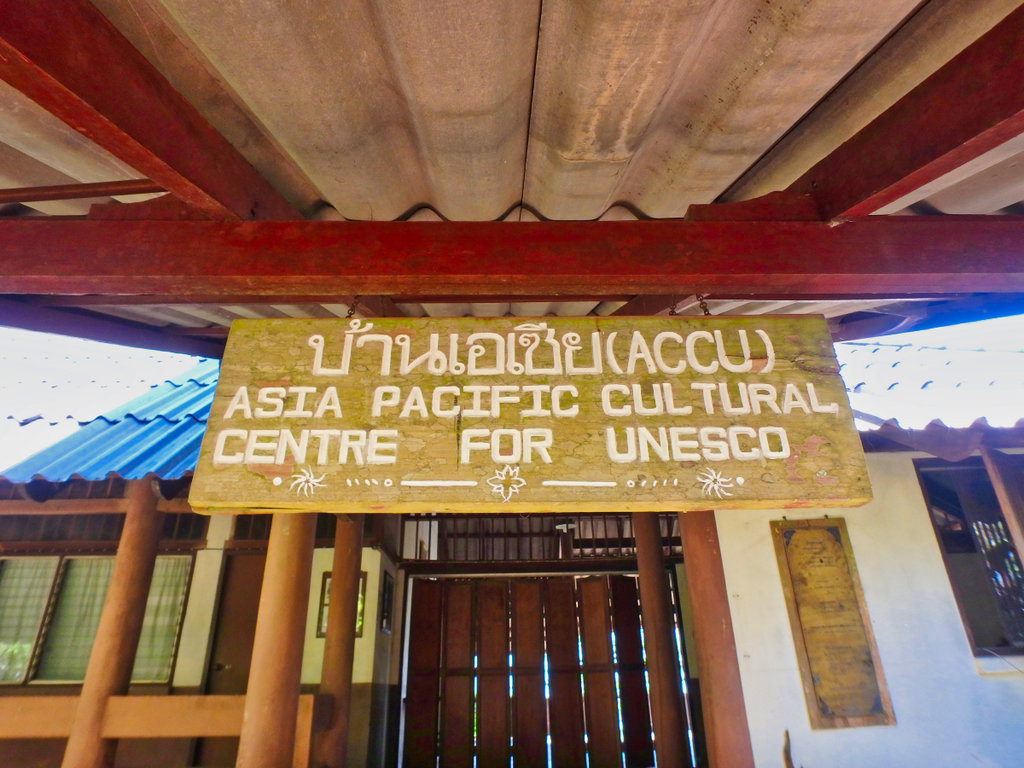 บ้านเอเชีย(ACCU)
ASIA PACIFIC CULTURAL
CENTRE FOR UNESCO